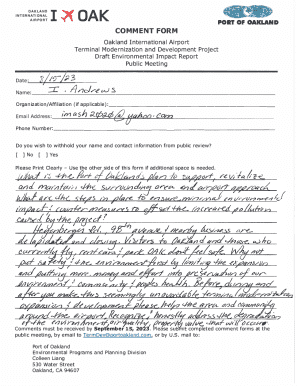 OAKLAND
INTERNATIONAL
AIRPORT
I OAK
PORT OF OAKLAND
COMMENT FORM
Oakland International Airport
Terminal Modernization and Development Project
Draft Environmental Impact Report
Public Meeting
Date: 8/15/23
Name: I. Andrews
Organization/Affiliation (if applicable):
Email Address: imash2420@yahoo.com
Phone Number:
Do you wish to withhold your name and contact information from public review?
[ ] No [ ] Yes
Please Print Clearly – Use the other side of this form if additional space is needed.
What is the Port of Oaklands plan to support, revitalize
and maintain the surrounding area and airport approach
What are the steps in place to ensure minimal environmental
impact & counter-measures to offset the increased pollution
caused by the project?
Hegenberger Rd, 98th avenue & nearby business are
delapidated and closing. Visitors to Oakland and those who
currently fly, rent cars & park ONLY don't feel safe. Why not
put safety, the environment first by limiting the expansion
and putting more money and effort into preservation of our
environment, community & peoples health before, during and
after you make this seemingly unavoidable terminal modernization
expansion & development please help the area and community
around the airport. Recognize & honestly address the degradation
of the environment, air quality, property value that will occur
Comments must be received by September 15, 2023. Please submit completed comment forms at the
public meeting, by email to TermDev@portoakland.com, or by U.S. mail to:
Port of Oakland
Environmental Programs and Planning Division
Colleen Liang
530 Water Street
Oakland, CA 94607